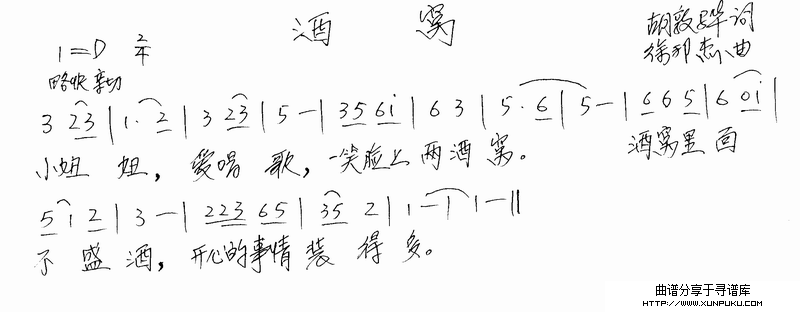 酒 窝
1=D 2/4
胡敦骅 词
略快 亲切
曲
3 23 | 1· 2 | 3 23 | 5 - | 35 6i | 6 3 | 5· 6 | 5 - | 6 6 5 | 6 0i |
小姐 姐， 爱唱 歌，一笑脸上两酒窝。 酒窝里面
5 1 2 | 3 - | 223 65 | 35 2 | 1 - | 1 - ‖
不 盛 酒，开心的事情装 得 多。
曲谱分享于寻谱库
HTTP://WWW.XUNPUKU.COM